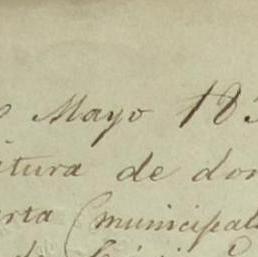 Mayo 183
itura de don
rta (municipal